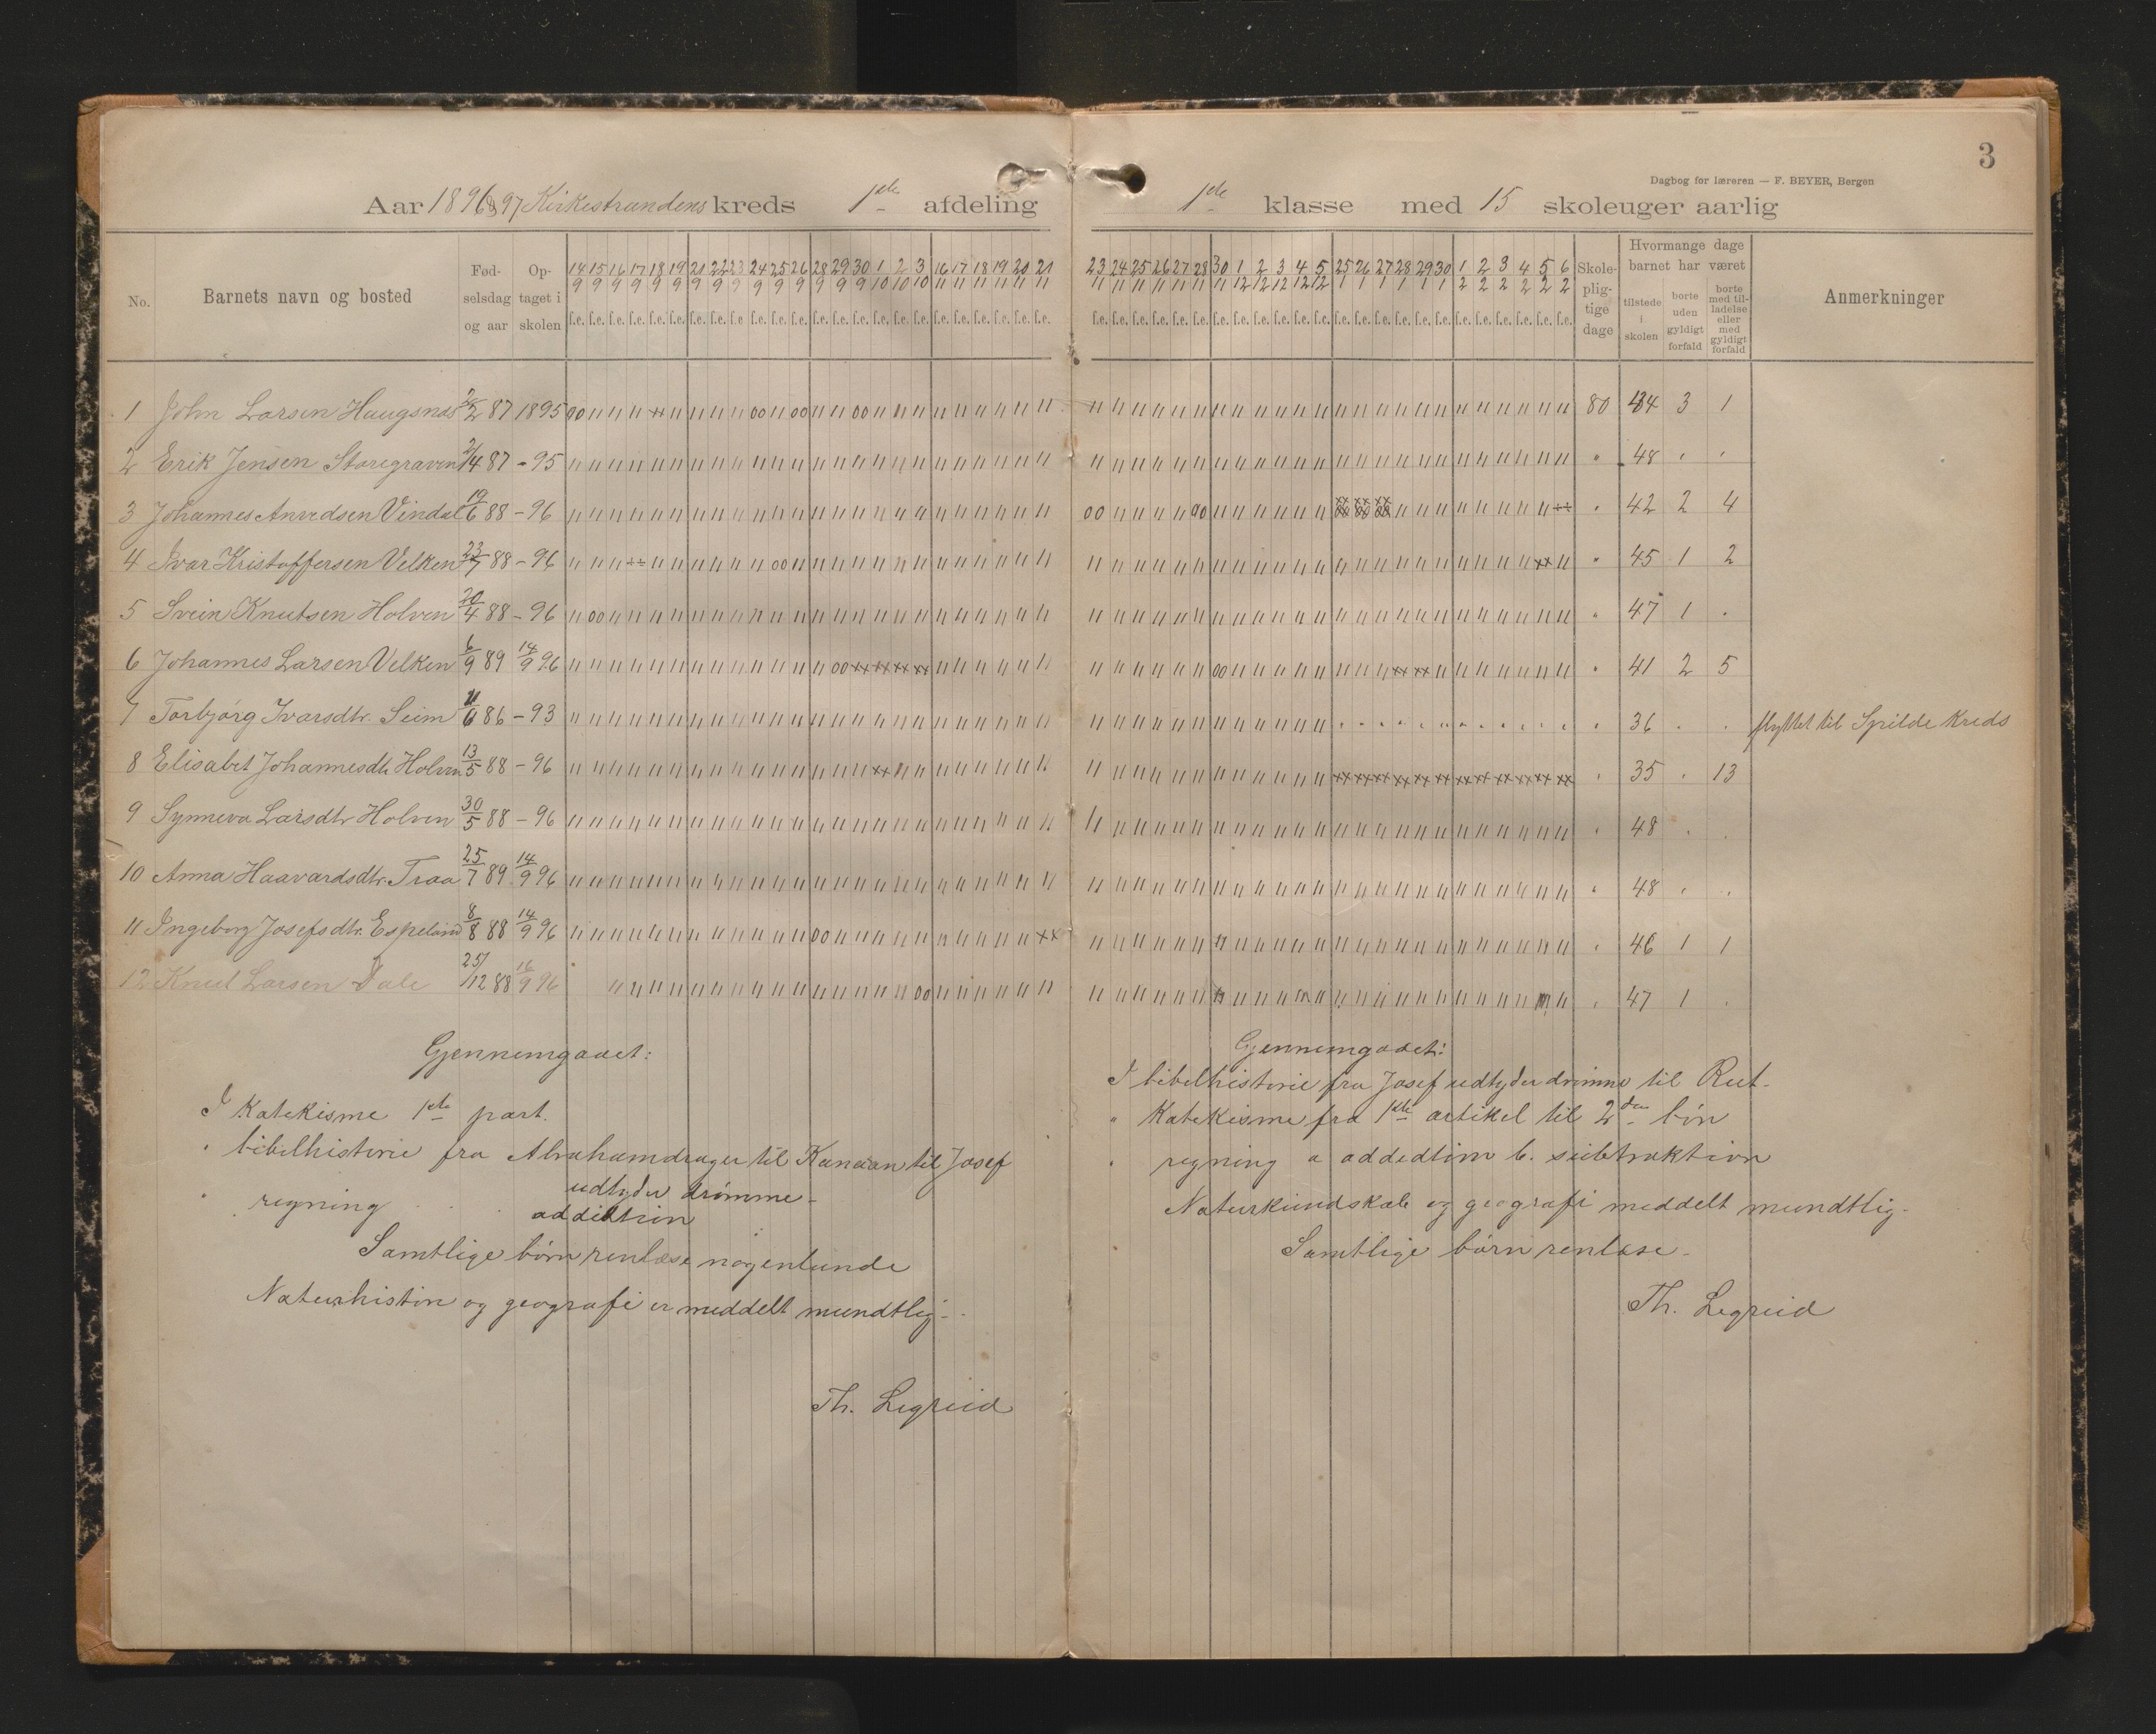 3
Dagbog for læreren — F. BEYER, Bergen
Aar 1896 & 97 Kirkestrandens kreds 1ste afdeling
1ste klasse med 15 skoleuger aarlig
No. Barnets navn og bosted Fødselsdag og aar Optaget i skolen
14/9 15/9 16/9 17/9 18/9 19/9 21/9 22/9 23/9 24/9 25/9 26/9 28/9 29/9 30/9 1/10 2/10 3/10 16/11 17/11 18/11 19/11 20/11 21/11
23/11 24/11 25/11 26/11 27/11 28/11 30/11 1/12 2/12 3/12 4/12 5/12 25/1 26/1 27/1 28/1 29/1 30/1 1/2 2/2 3/2 4/2 5/2 6/2
f.e. f.e. f.e. f.e. f.e. f.e. f.e. f.e. f.e. f.e. f.e. f.e. f.e. f.e. f.e. f.e. f.e. f.e. f.e. f.e. f.e. f.e. f.e. f.e.
f.e. f.e. f.e. f.e. f.e. f.e. f.e. f.e. f.e. f.e. f.e. f.e. f.e. f.e. f.e. f.e. f.e. f.e. f.e. f.e. f.e. f.e. f.e. f.e.
Skolepligtige dage
Hvormange dage barnet har været
tilstede i skolen
borte uden gyldigt forfald
borte med tilladelse eller med gyldigt forfald
Anmerkninger
1 John Larsen Haugsnes /2 87 1895 80 44 3 1
2 Erik Jensen Storegraven /4 87 - 95 " 48 " "
3 Johannes Anvedsen Vindal 19/6 88 - 96 " 42 2 4
4 Ivar Kristoffersen Velken 23/7 88 - 96 " 45 1 2
5 Svein Knutsen Holven 20/4 88 - 96 " 47 1 "
6 Johannes Larsen Velken 6/9 89 14/9 96 " 41 2 5
7 Torbjørg Ivarsdtr. Seim 11/6 86 - 93 " 36 " " flyttet til Spilde kreds
8 Elisabet Johannesdtr Holven 13/5 88 - 96 " 35 " 13
9 Synneva Larsdtr Holven 30/5 88 - 96 " 48 " "
10 Anna Haavardsdtr. Traa 25/7 89 14/9 96 " 48 " "
11 Ingeborg Josefsdtr. Espeland 8/8 88 14/9 96 " 46 1 1
12 Knut Larsen Dale 25/12 88 16/9 96 " 47 1 "
Gjennemgaaet:
I Katekisme 1ste part.
" bibelhistorie fra Abraham drager til Kanaan til Josef
udtyder drømme -
" regning addition
Samtlige børn renlæse nogenlunde
Naturhistorie og geografi er meddelt mundtlig -
Th. Legreid
Gjennemgaaet:
I bibelhistorie fra Josef udtyder drømme til Rut.
" Katekisme fra 1ste artikel til 2den bøn
" regning a addedtion b. subtraktion
Naturkundskab og geografi meddelt mundtlig.
Samtlige børn renlæse.
Th. Legreid